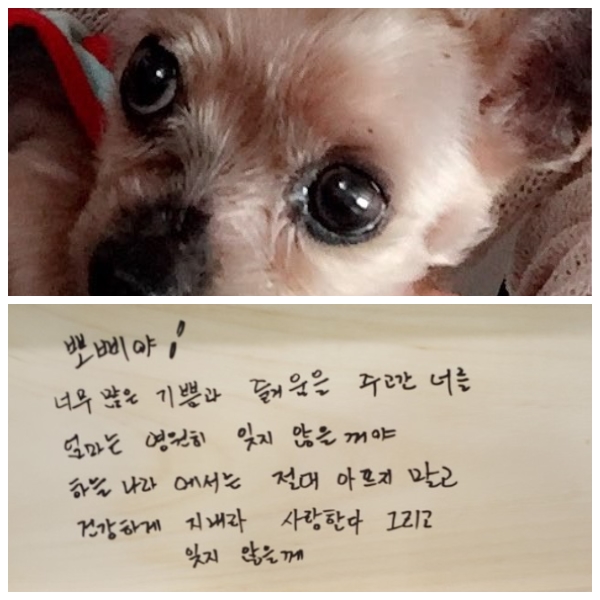 뽀삐야!
너무 많은 기쁨과 즐거움을 주고간 너를
엄마는 영원히 잊지 않을꺼야
하늘 나라 에서는 절대 아프지 말고
건강하게 지내라 사랑한다 그리고
잊지 않을께